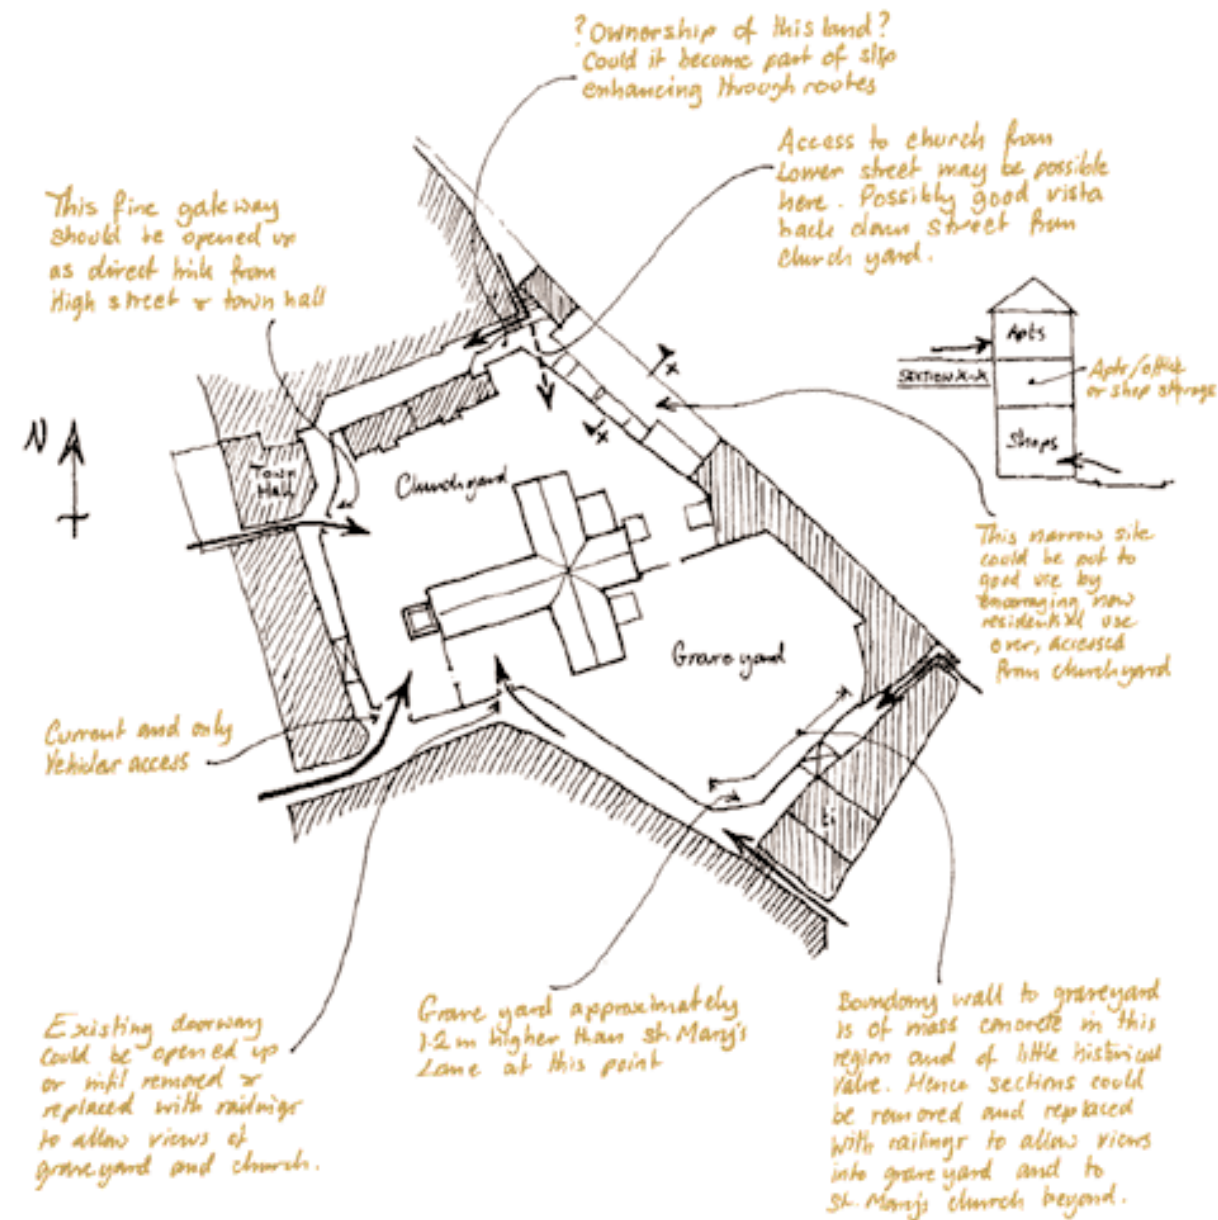 ?Ownership of this land?
Could it become part of slip
enhancing through routes
Access to church from
Lower street may be possible
here. Possibly good vista
back down street from
Church yard.
This fine gateway
should be opened up
as direct link from
High street & town hall
Apts
SECTION X-X
Apts/office
or shop storage
Shops
N
x
x
Town
Hall
Churchyard
This narrow site
could be put to
good use by
encouraging new
residential use
over, accessed
from churchyard
Graveyard
Current and only
Vehicular access
ti
Existing doorway
could be opened up
or infil removed &
replaced with railings
to allow views of
graveyard and church.
Grave yard approximately
1.2m higher than St. Mary's
Lane at this point
Boundary wall to graveyard
is of mass concrete in this
region and of little historical
value. Hence sections could
be removed and replaced
with railings to allow views
into graveyard and to
St. Mary's church beyond.